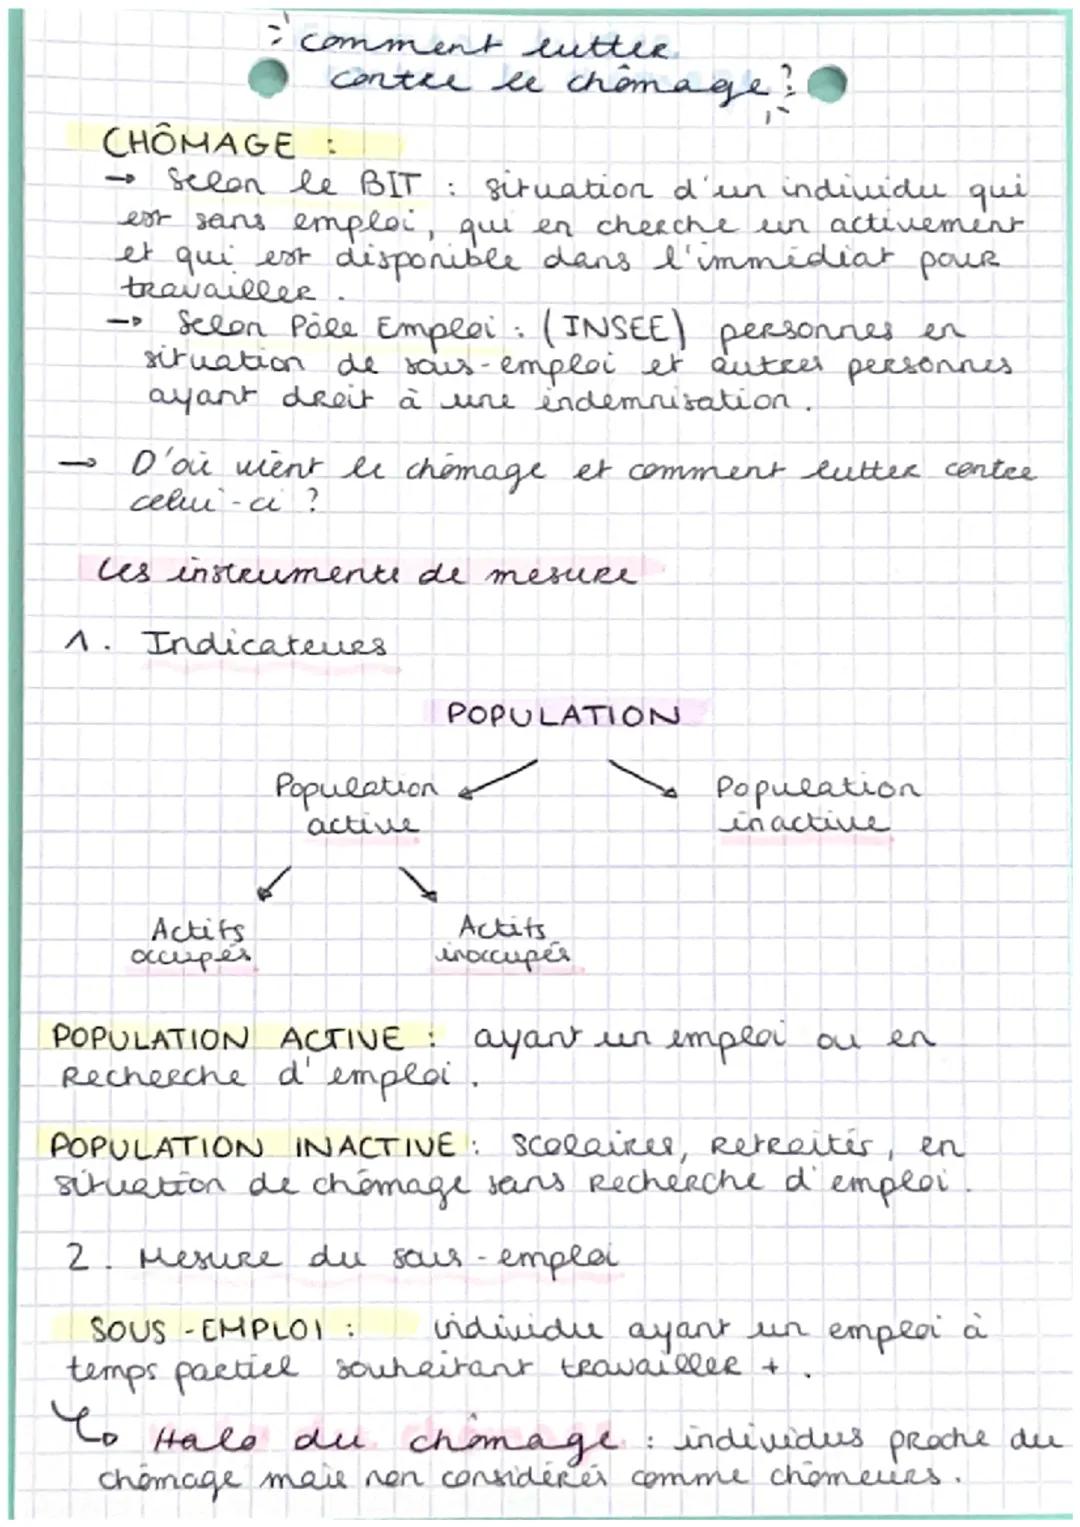 Comment lutter
contre le chômage ?
CHÔMAGE :
→ Selon le BIT : situation d'un individu qui
est sans emploi, qui en cherche un activement
et qui est disponible dans l'immédiat pour
travailler.
→ Selon Pôle Emploi : (INSEE) personnes en
situation de sous-emploi et autres personnes
ayant droit à une indemnisation.
→ D'où vient le chômage et comment lutter contre
celui-ci ?
Les instruments de mesure
1. Indicateurs
POPULATION
Population active
Population inactive
Actifs occupés
Actifs inoccupés
POPULATION ACTIVE : ayant un emploi ou en
Recherche d'emploi.
POPULATION INACTIVE : scolaires, Retraités, en
situation de chômage sans Recherche d'emploi.
2. Mesure du sous-emploi
SOUS-EMPLOI : individu ayant un emploi à
temps partiel souhaitant travailler +.
↳ Halo du chômage : individus proche du
chômage mais non considérés comme chômeurs.